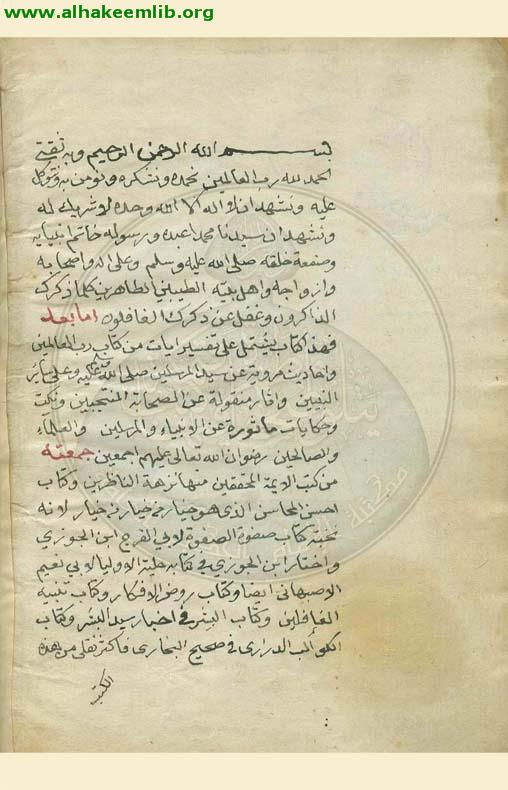 www.alhakeemlib.org
بسم الله الرحمن الرحيم وبه ثقتي
الحمد لله رب العالمين نحمده ونشكره ونومن به ونتوكل
عليه ونشهد ان لا اله الا الله وحده لا شريك له
ونشهد ان سيدنا محمدا عبده ورسوله خاتم انبيايه
وصفوة خلقه صلى الله عليه وسلم وعلى اله واصحابه
وازواجه واهل بيته الطيبين الطاهرين كلما ذكرك
الذاكرون وغفل عن ذكرك الغافلون اما بعد
فهذا كتاب يشتمل على تفسير ايات من كتاب رب العالمين
واحاديث مروية عن سيد المرسلين صلى الله عليه وسلم وعلى ساير
النبيين واثار منقولة عن الصحابة المنتجبين ونكت
وحكايات ماثورة عن الانبياء والمرسلين والعلماء
والصالحين رضوان الله تعالى عليهم اجمعين جمعته
من كتب الايمة المحققين منها نزهة الناظرين وكتاب
احسن المحاسن الذي هو خيار من خيار من خيار لانه
نخبة كتاب صفوة الصفوة لابي الفرج ابن الجوزي
واختار ابن الجوزي في كتابه حلية الاوليا لابي نعيم
الاصبهاني ايضا وكتاب روض الافكار وكتاب تنبيه
الغافلين وكتاب البشر في اخبار سيد البشر وكتاب
الكواكب الدراري في صحيح البخاري فاكثر نقلي من هذه
الكتب